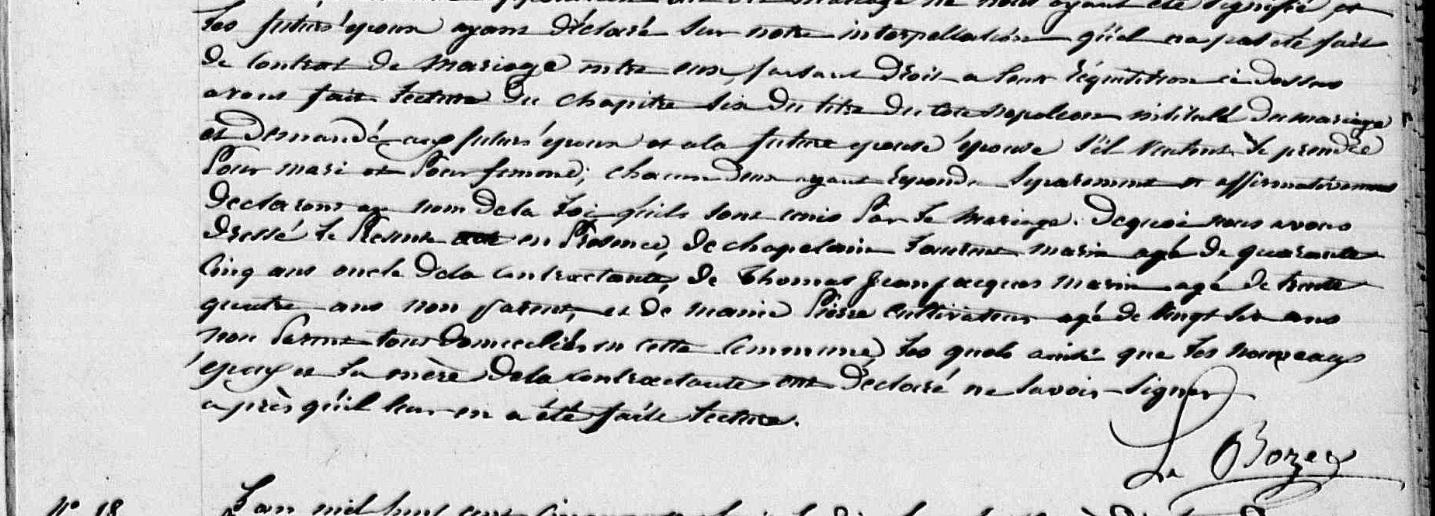 opposition au dit mariage ne nous ayant été signifié, et
les futurs époux ayant déclaré sur notre interpellation qu'il n'a pas été fait
de contrat de mariage entre eux, faisant droit a leur réquisition ci dessus
avons fait lecture du chapitre six du titre du code napoleon intitulé du mariage
et demandé aux futurs époux et a la future epouse s'il veulent se prendre
Pour mari et Pour femme; chacun deux ayant repondu séparement et affirmativement
Declarons au nom de la loi qu'ils sont unis Par le mariage. De quoi nous avons
dressé le Présent acte en Présence, de chapelain Laurent marin agé de quarante
cinq ans oncle dela contractante, de Thomas Jean jacques marin agé de trente
quatre ans non parent, et de Pierre cultivateur agé de vingt six ans
non Parent tous domiciliés en cette Commune, les quels ainsi que les nouveaux
époux et la mère dela contractante ont déclaré ne savoir signer
après qu'il leur en a été faite lecture.
Le Bozec
N° 18
L'an mil huit cent cinquante